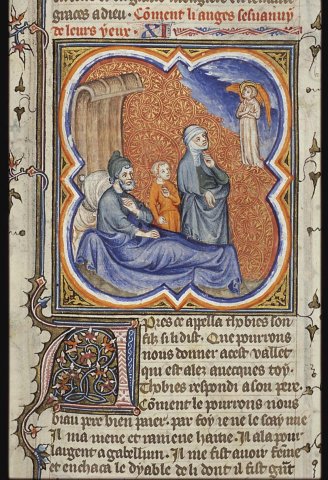 graces adieu. Cõment li angles sesuanuy
de leurs yeux. XI
Apres ce appella thybies son
filz si li dist. Que pourrons
nous donner a cest vallet
qui est alez auecques toy.
Thybies respondi a son pere
Cõment le pourrons nous
biau pere bien paier. par foy ie ne le scay mie
Il ma mene et ramene haitie. Il ala pour
largent a gabellum. Il me fist auoir feme
et enchaca le dyable de li dont il fist